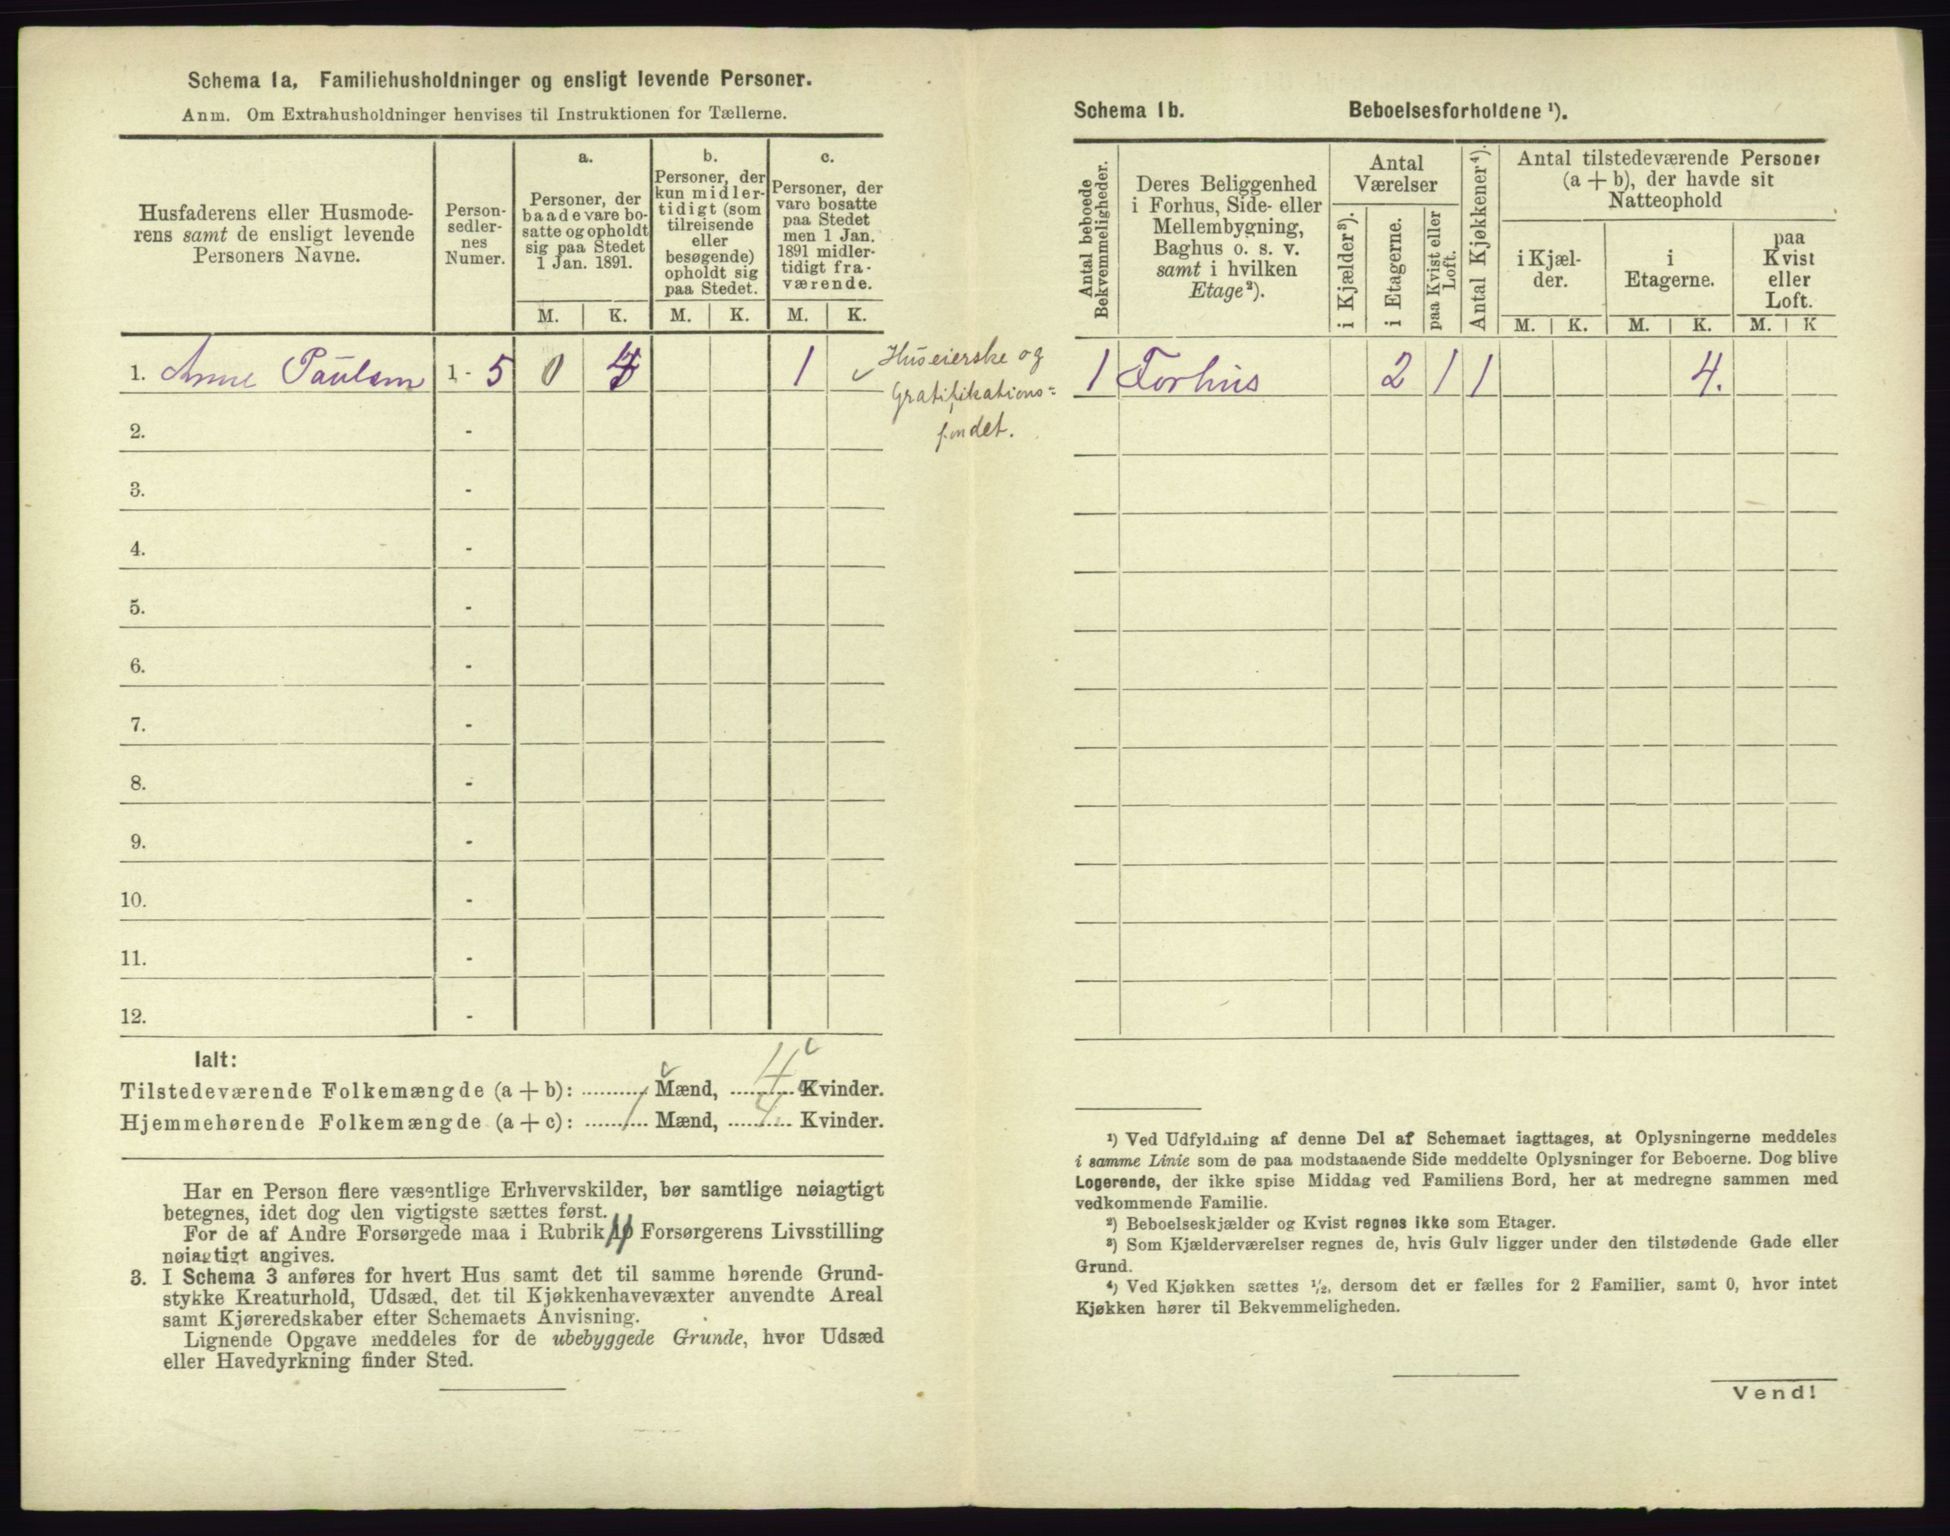 Schema 1a, Familiehusholdninger og ensligt levende Personer.
Anm. Om Extrahusholdninger henvises til Instruktionen for Tællerne.
Husfaderens eller Husmode-
rens samt de ensligt levende
Personers Navne.
Person-
sedler-
nes
Numer.
a.
Personer, der
baade vare bo-
satte og opholdt
sig paa Stedet
1 Jan. 1891.
b.
Personer, der
kun midler-
tidigt (som
tilreisende
eller
besøgende)
opholdt sig
paa Stedet.
c.
Personer, der
vare bosatte
paa Stedet
men 1 Jan.
1891 midler-
tidigt fra-
værende.
M. K. M. K. M. K.
1. Anne Paulsen 1 - 5 0 4 1
Huseierske og
Gratifikations=
fondet.
2. -
3. -
4. -
5. -
6. -
7. -
8. -
9. -
10. -
11. -
12. -
Ialt:
Tilstedeværende Folkemængde (a + b): ........ Mænd, 4 Kvinder.
Hjemmehørende Folkemængde (a + c): 1 Mænd, 4 Kvinder.
Har en Person flere væsentlige Erhvervskilder, bør samtlige nøiagtigt
betegnes, idet dog den vigtigste sættes først.
For de af Andre Forsørgede maa i Rubrik 10 Forsørgerens Livsstilling
nøiagtigt angives.
3. I Schema 3 anføres for hvert Hus samt det til samme hørende Grund-
stykke Kreaturhold, Udsæd, det til Kjøkkenhavevæxter anvendte Areal
samt Kjøreredskaber efter Schemaets Anvisning.
Lignende Opgave meddeles for de ubebyggede Grunde, hvor Udsæd
eller Havedyrkning finder Sted.
Schema 1b. Beboelsesforholdene ¹).
Antal beboede
Bekvemmeligheder.
Deres Beliggenhed
i Forhus, Side- eller
Mellembygning,
Baghus o. s. v.
samt i hvilken
Etage²).
Antal
Værelser
i Kjælder³).
i Etagerne.
paa Kvist eller
Loft.
Antal Kjøkkener⁴).
Antal tilstedeværende Personer
(a + b), der havde sit
Natteophold
i Kjæl-
der.
i
Etagerne.
paa
Kvist
eller
Loft.
M. K. M. K. M. K
1 Forhus 2 1 1 4.
¹) Ved Udfyldning af denne Del af Schemaet iagttages, at Oplysningerne meddeles
i samme Linie som de paa modstaaende Side meddelte Oplysninger for Beboerne. Dog blive
Logerende, der ikke spise Middag ved Familiens Bord, her at medregne sammen med
vedkommende Familie.
²) Beboelseskjælder og Kvist regnes ikke som Etager.
³) Som Kjælderværelser regnes de, hvis Gulv ligger under den tilstødende Gade eller
Grund.
⁴) Ved Kjøkken sættes ½, dersom det er fælles for 2 Familier, samt 0, hvor intet
Kjøkken hører til Bekvemmeligheden.
Vend!